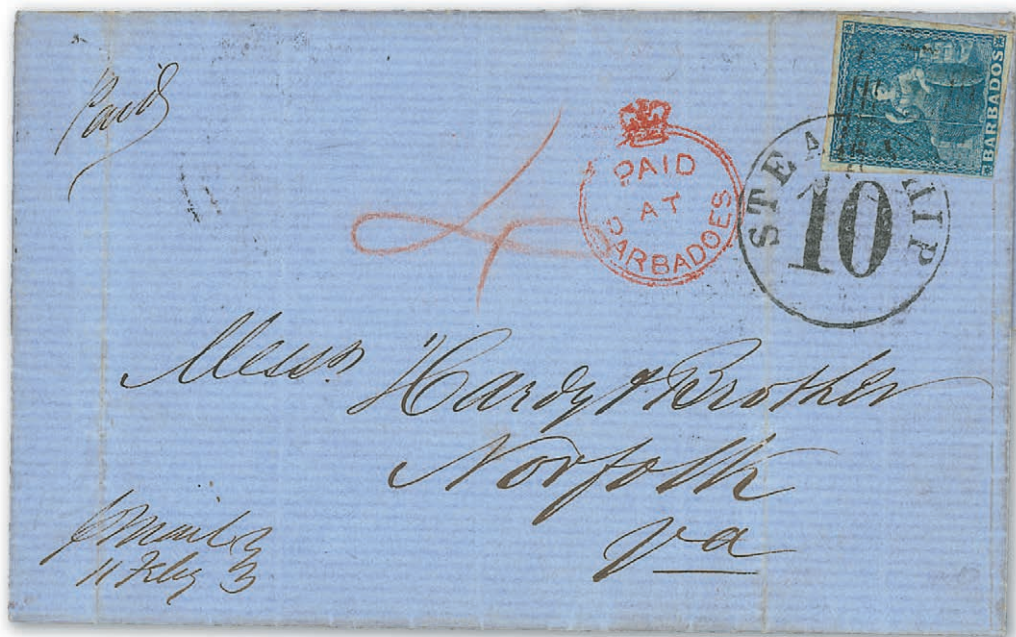 Paid
BARBADOS
PAID
AT
BARBADOES
STEAMSHIP
10
4
Messrs Hardy & Brother
Norfolk
Va
p Mail
11 Feby